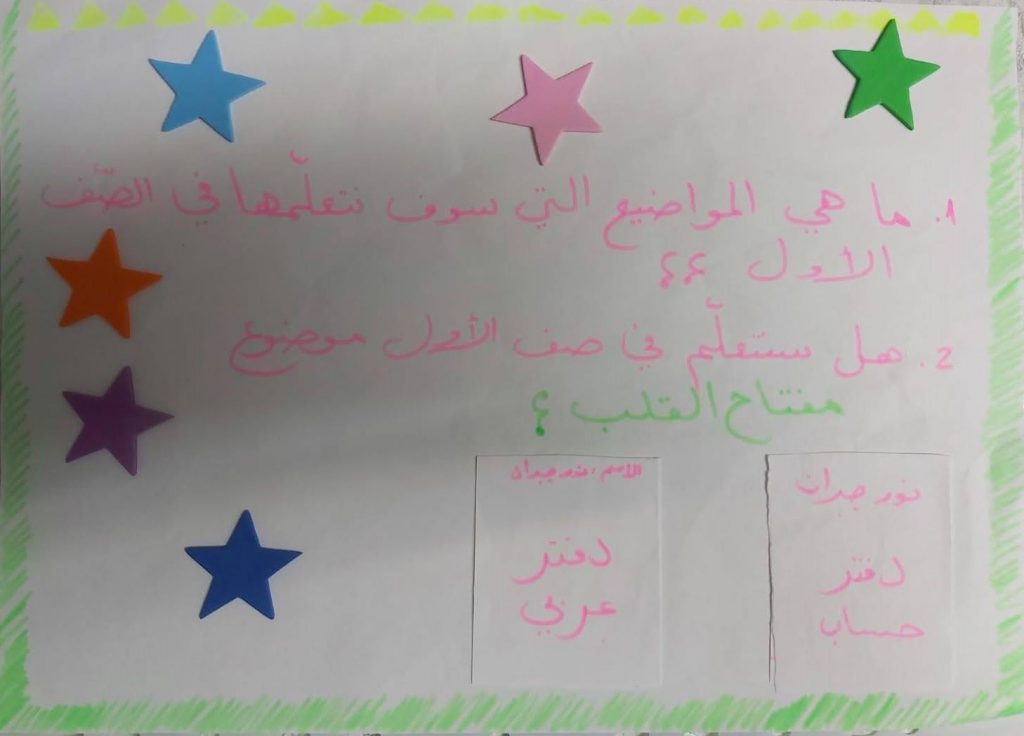 1. ما هي المواضيع التي سوف نتعلّمها في الصّف
الأول ؟؟
2. هل سنتعلّم في صف الأول موضوع
مفتاح القلب ؟
نور جبران
دفتر
حساب
الاسم: نور جبران
دفتر
عربي